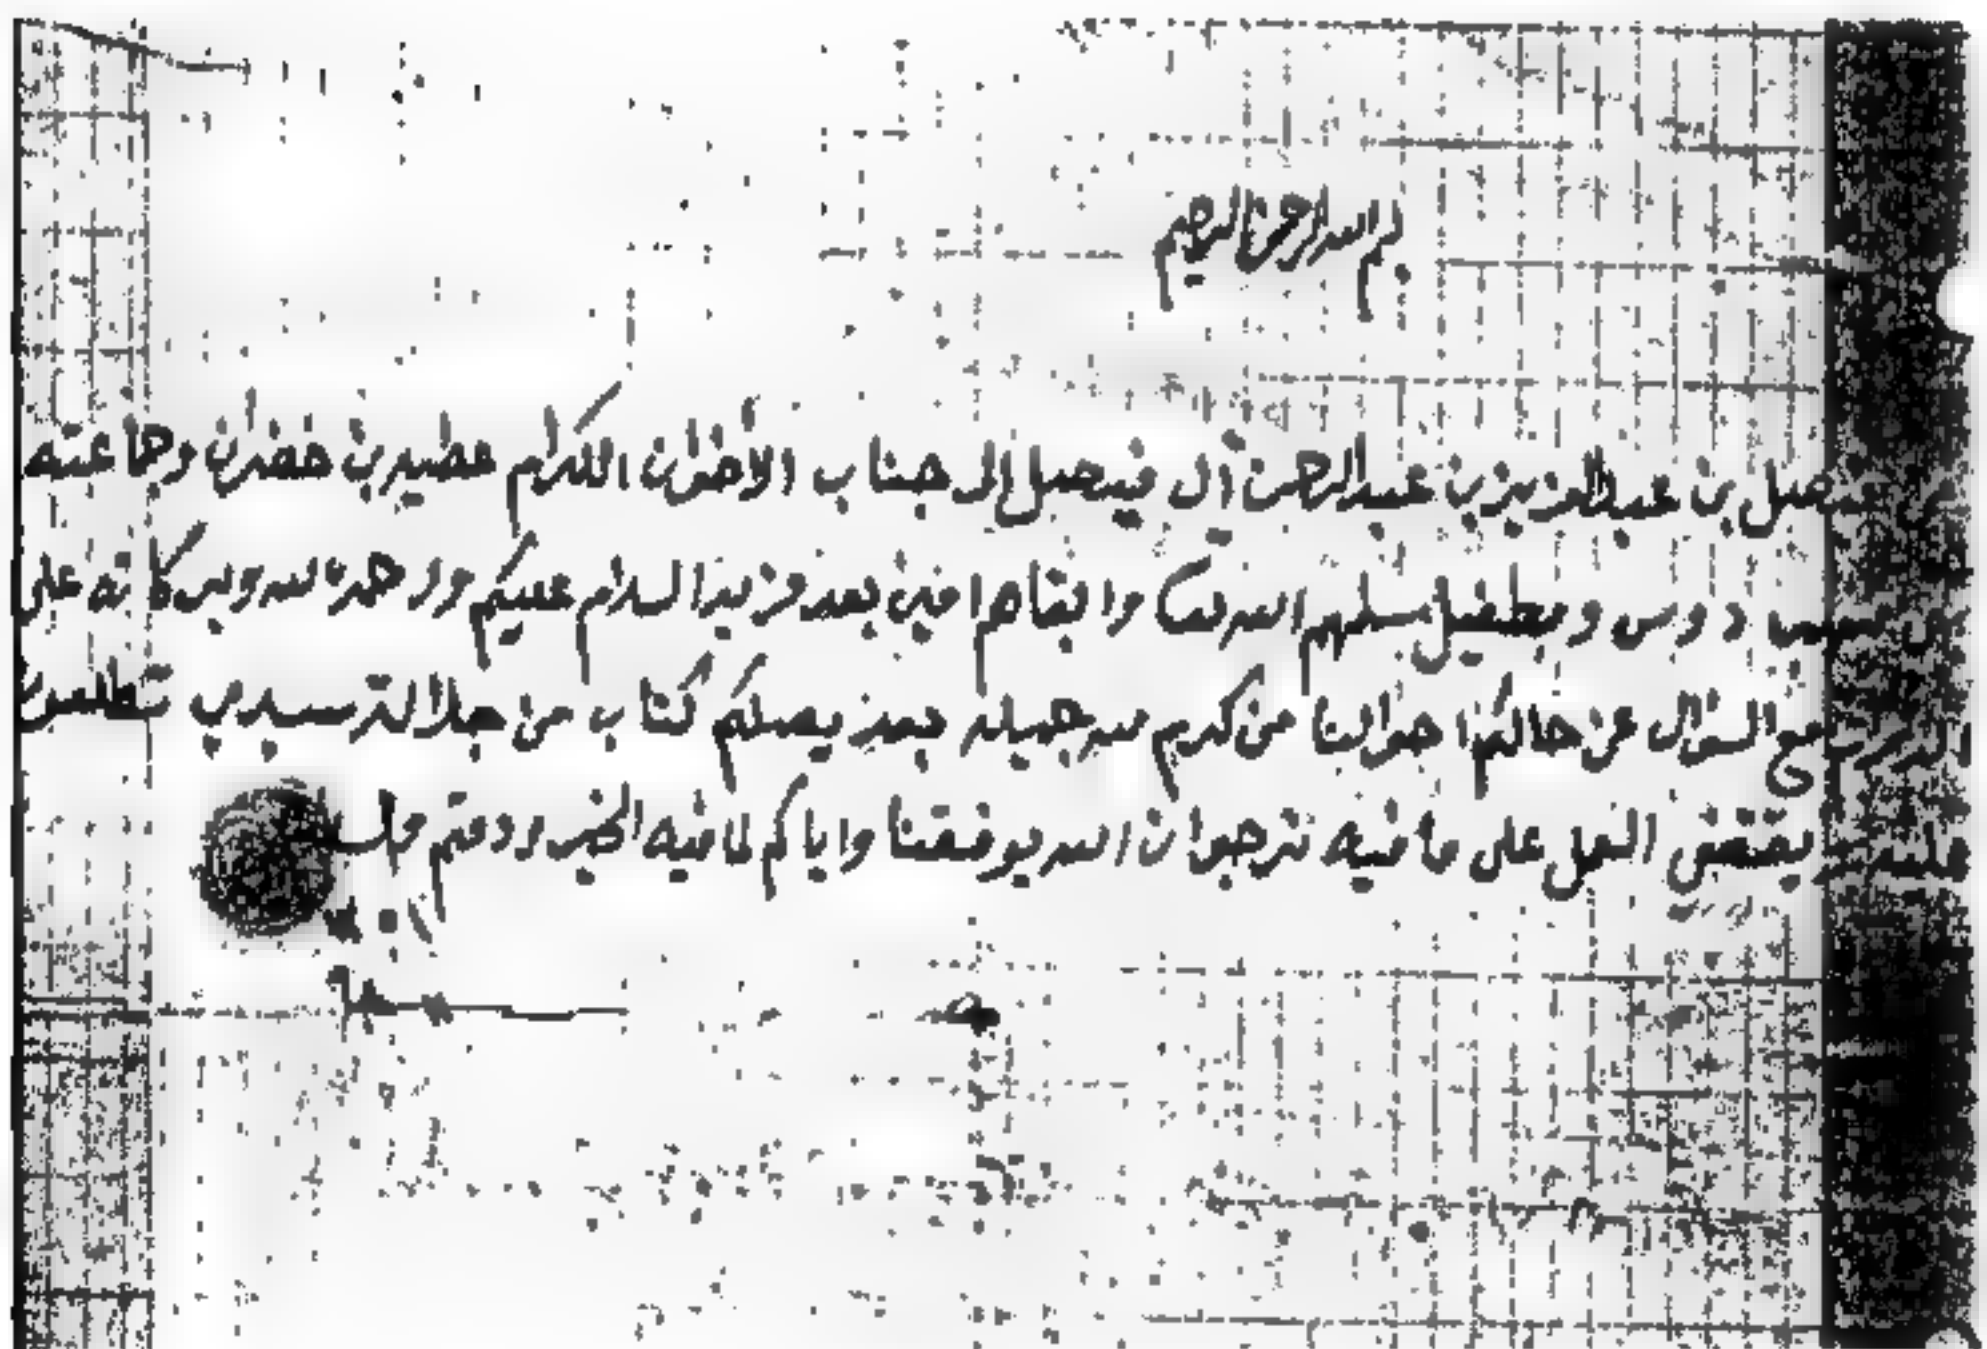 بسم الله الرحمن الرحيم
فيصل بن عبدالعزيز بن عبدالرحمن آل فيصل إلى جناب الأخوان الكرام عطيه بن خضران وجماعته
دوس وبطفيل سلمهم الله تعالى وابقاهم امين بعد مزيد السلام عليكم ورحمة الله وبركاته على
مع السؤال عن حالكم احوالنا من كرم الله جميله بعد يصلكم كتاب من جلالة سيدي تطلعون
عليه يقتضي العمل على ما فيه نرجوا ان الله يوفقنا واياكم لما فيه الخير ودمتم